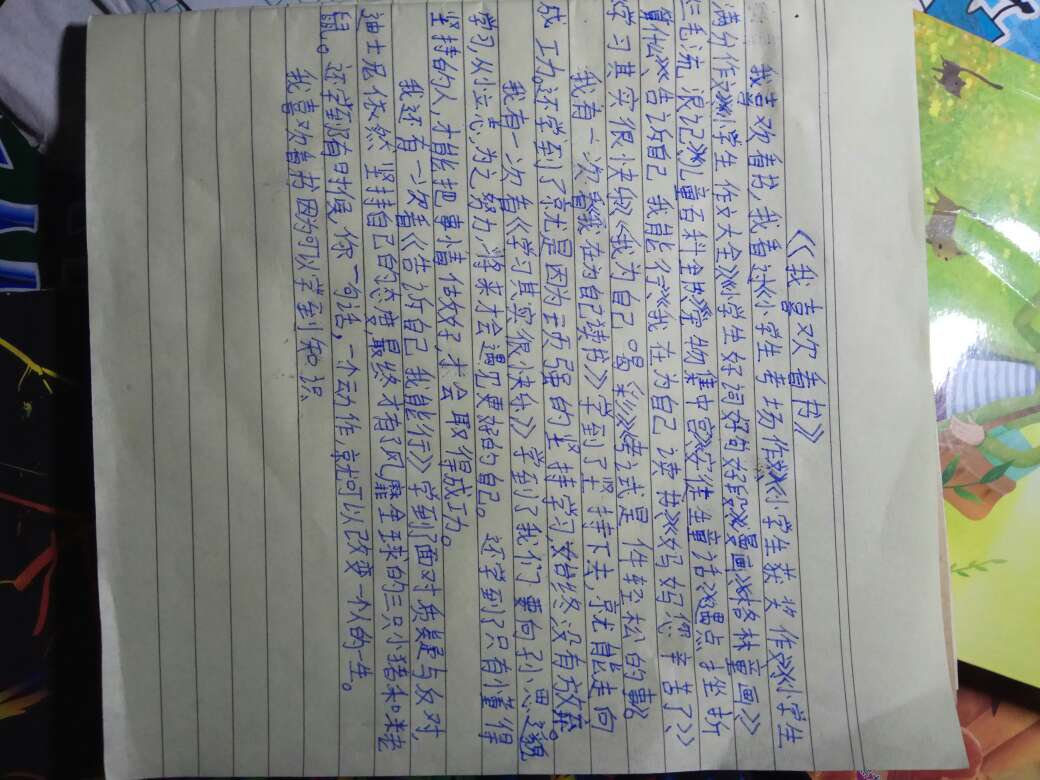 《我喜欢看书》
我喜欢看书,我看过《小学生考场作》《小学生获奖作》《小学生
满分作》《小学生作文大全》《小学生好词好句好段》《漫画》《格林童画》
《三毛流浪记》《儿童百科全书》《宠物集中宫》《安徒生童话》《遇点挫折
算什么》《告诉自己我能行》《我在为自己读书》《妈妈您辛苦了》
《学习其实很快乐》《我为自己喝彩》《考试是件轻松的事》
我有一次看《我在为自己读书》学到了坚持下去,就能走向
成功。还学到了就是因为王西强的坚持学习,始终没有放弃。
我有一次看《学习其实很快乐》学到了我们要向孙思邈
学习,从小立志,为之努力,将来才会遇见更好的自己。还学到了只有懂得
坚持的人,才能把事情做好,才会取得成功。
我还有一次看《告诉自己我能行》学到了面对质疑与反对,
迪士尼依然坚持自己的态度最终才有了风靡全球的三只小猪和米老
鼠。还学到了有时候,你一句话,一个动作,就可以改变一个人的一生。
我喜欢看书因为可以学到知识